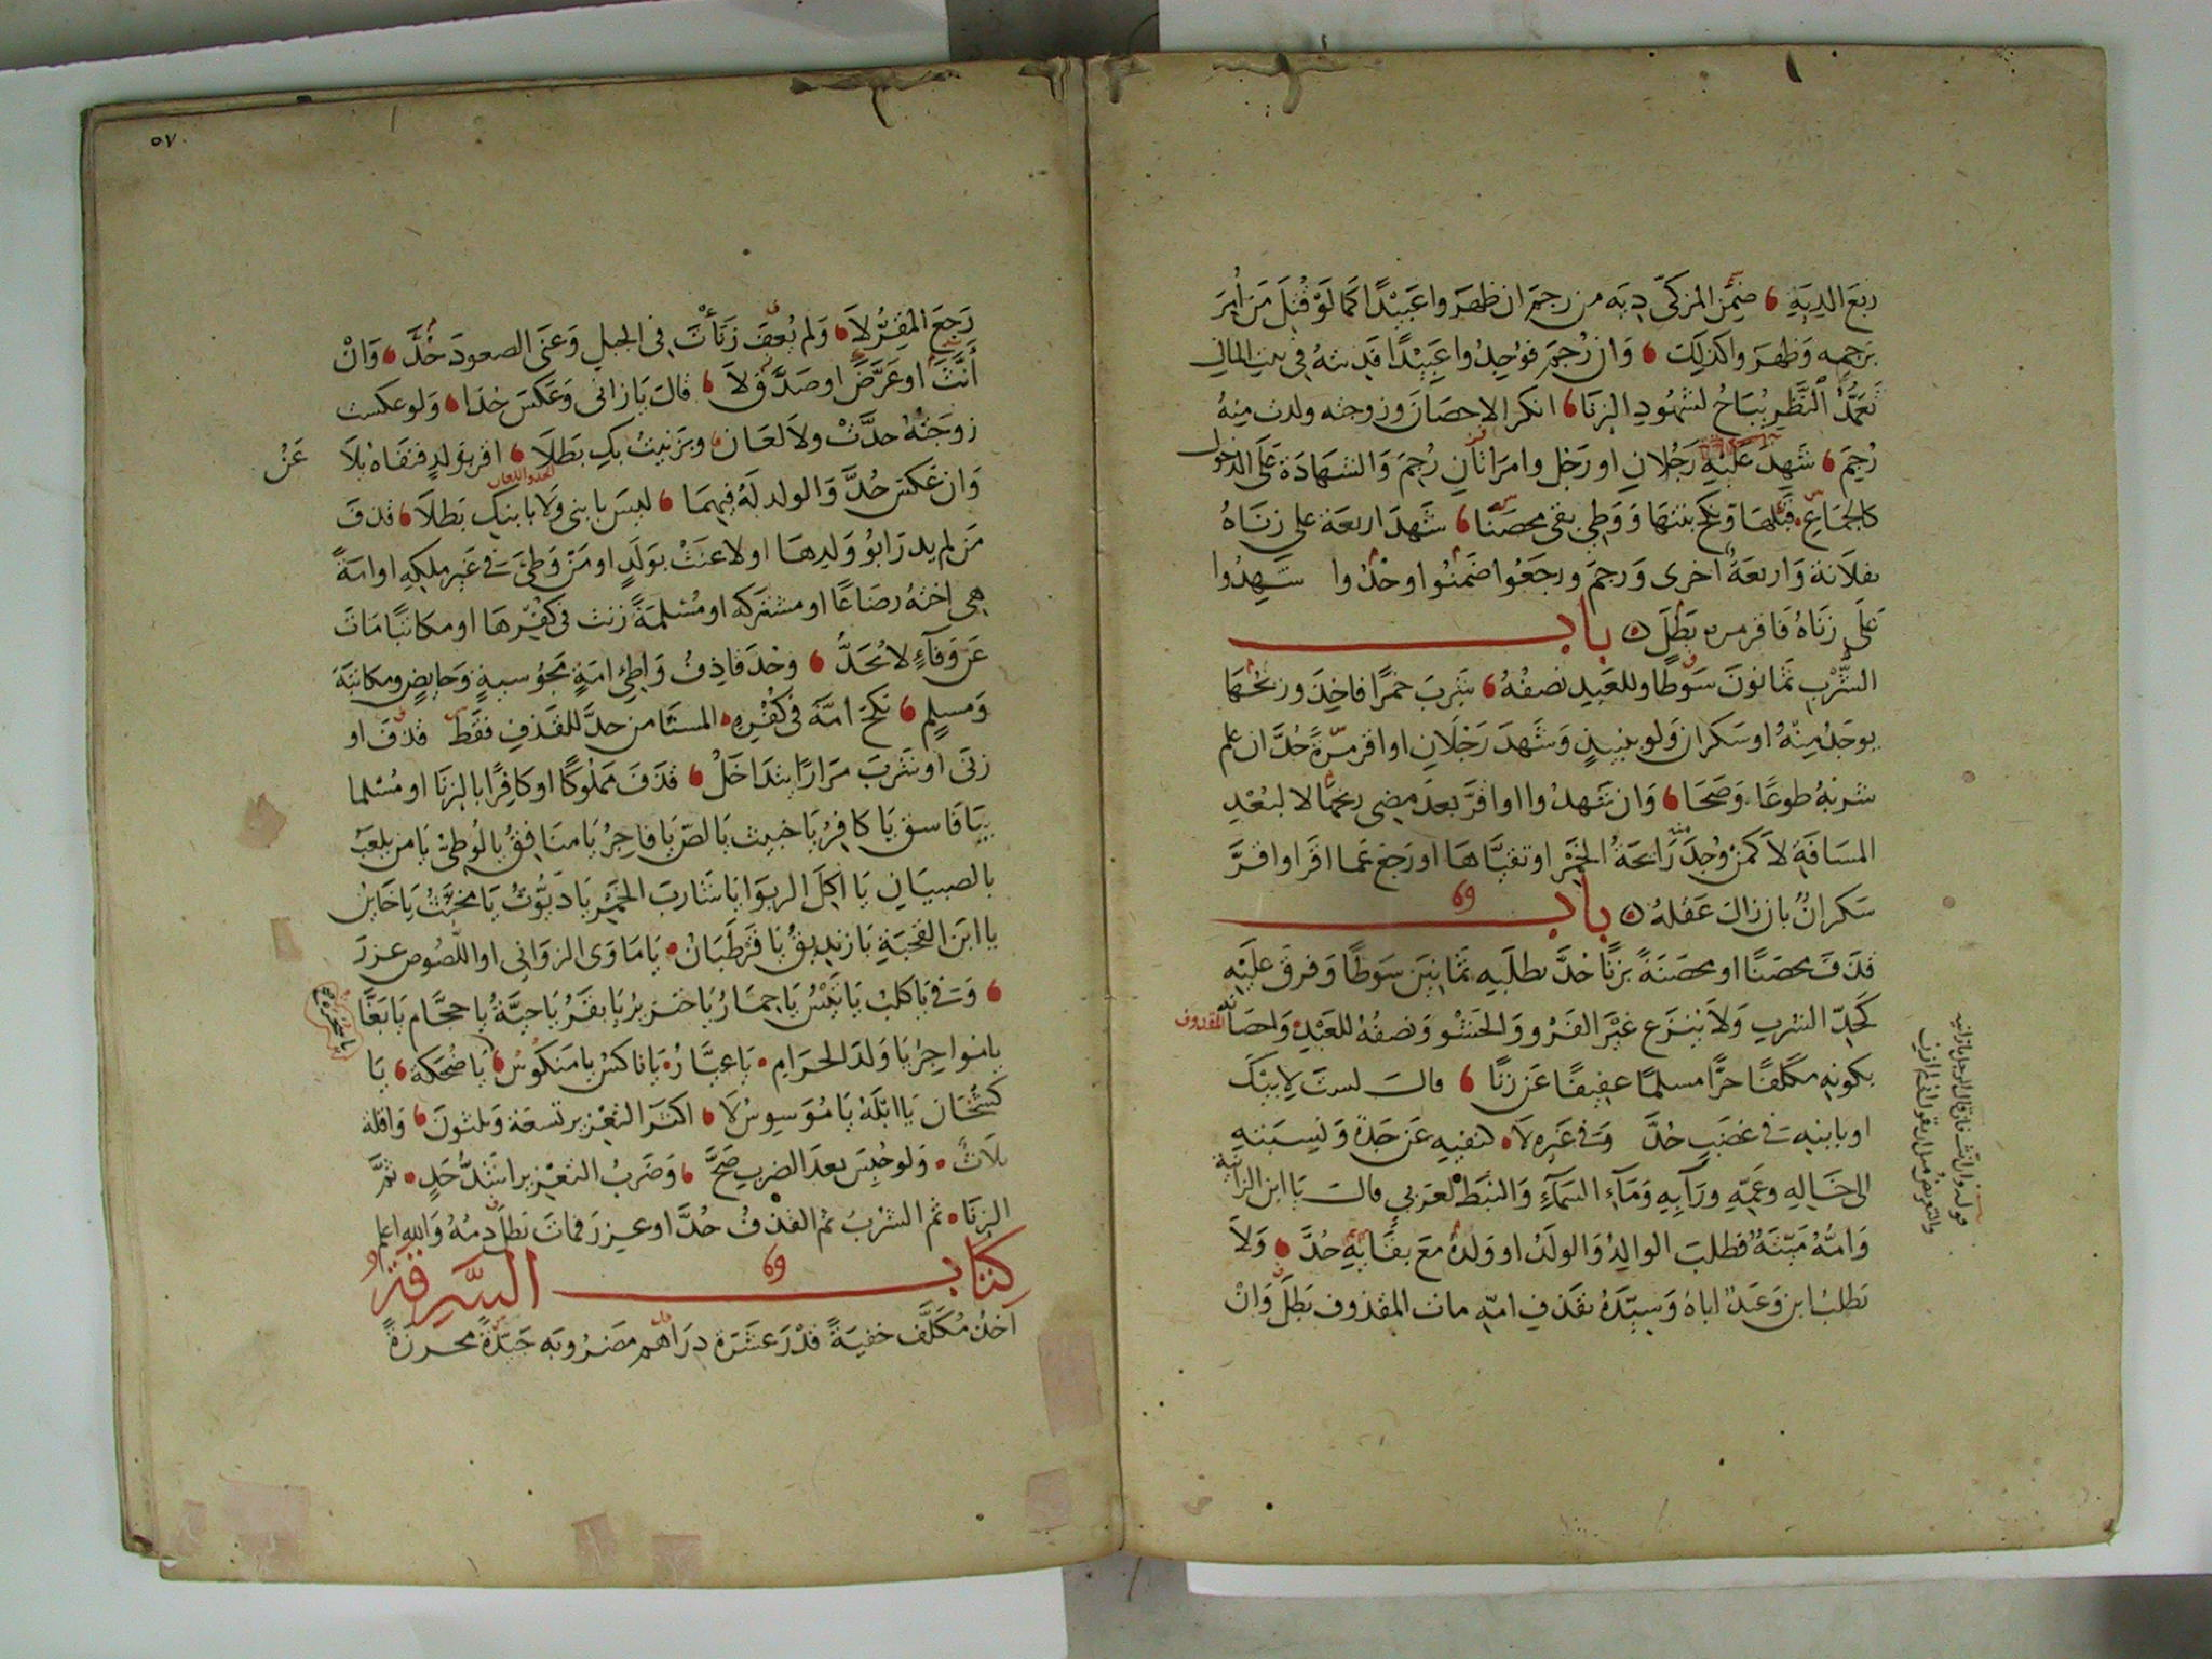 ربع الدية ضمن المزكى دية من رجم ان ظهروا عبيدا كما لو قتل من امر
برجمه وظهروا كذلك وان رجم فوجدوا عبيدا فديته في بيت المال
تعمد النظر يباح لشهود الزنا انكر الاحصان وزوجته ولدت منه
رجم شهد عليه رجلان او رجل وامراتان رجم والشهادة على الدخول
كالجماع قبلها ونكح بنتها ووطئ بقي محصنا شهد اربعة على زناه
بفلانة واربعة اخرى ورجم ورجعوا ضمنوا او حدوا شهدوا
على زناه فاقر مرة بطل باب
الشرب ثمانون سوطا وللعبد نصفه شرب خمرا فاخذ وريحها
يوجد منه او سكران ولو بنبيذ وشهد رجلان او اقر مرة حد ان علم
شربه طوعا وصحا وان شهدوا او اقر بعد مضي ريحها لا لبعد
المسافة لا كمن وجد رائحة الخمر او تقياها او رجع عما اقر او اقر
سكران بان زال عقله باب
قذف محصنا او محصنة بزنا حد بطلبه ثمانين سوطا وفرق عليه
كحد الشرب ولا ينزع غير الفرو والحشو ونصفه للعبد واحصانه المقذوف
بكونه مكلفا حرا مسلما عفيفا عن زنا قال لست لابيك
او بابنه في غضب حد وفي غيره لا كنفيه عن جده ونسبته
الى خاله وعمه ورابه وماء السماء والنبط لعربي قال يا ابن الزانية
وامه ميتة فطلب الوالد والولد او ولده مع بقائه حد ولا
يطلب ابن وعبد اباه وسيده بقذف امه مات المقذوف بطل وان
قوله وان انث فان قال الرجل يا زانية
والتعريض مثل ان يقول لست انا بزان
٥٧
رجع المقر لا ولم يعف زنأت في الجبل وعنى الصعود حد وان
أنث او عرض او صدق لا قالت يا زاني وعكس حدا ولو عكست
زوجته حدت ولا لعان وبزنيت بك بطلا اقر بولد فنفاه بلا عن
وان عكس حد والولد له فيهما ليس بابني ولا بابنك بطلا قذف
الحد واللعان
من لم يدر ابو ولدها او لاعنت بولد او من وطئ في غير ملكه او امة
هي اخته رضاعا او مشتركه او مسلمة زنت في كفرها او مكاتبا مات
عن وفاء لا يحد وحد قاذف واطئ امة مجوسية وحايض ومكاتبة
ومسلم نكح امه في كفره المستامن حد للقذف فقط قذف او
زنى او شرب مرارا يتداخل قذف مملوكا او كافرا بالزنا او مسلما
بيا فاسق يا كافر يا خبيث يا لص يا فاجر يا منافق يا لوطي يا من يلعب
بالصبيان يا اكل الربوا يا شارب الخمر يا ديوث يا مخنث يا خاين
يا ابن القحبة يا زنديق يا قرطبان يا ماوى الزواني او اللصوص عزر
وفي يا كلب يا تيس يا حمار يا خنزير يا بقر يا حية يا حجام يا بغا
يا مواجر يا ولد الحرام يا عيار يا ناكس يا منكوس يا ضحكة يا
كشخان يا ابله يا موسوس لا اكثر التعزير تسعة وثلثون واقله
ثلاث ولو حبس بعد الضرب صح وضرب التعزير اشد حد ثم
الزنا ثم الشرب ثم القذف حد او عزر فمات بطل دمه والله اعلم
كتاب السرقة
اخذ مكلف خفية قدر عشرة دراهم مضروبه جيدة محرزة